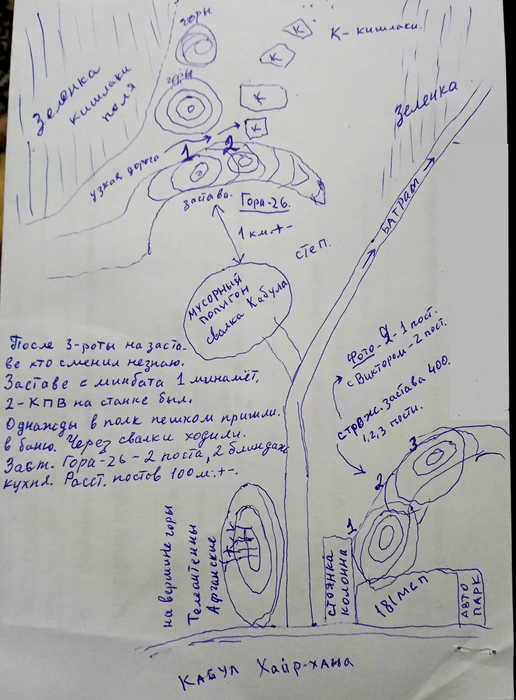 горы
К - кишлаки.
К
К
горы
Зеленка
кишлаки
поля
К
Зеленка
К
узкая дорога
1
2
застава.
Гора-26.
1 км. + -
степ.
БАГРАМ
мусорный
полигон
свалка Кабула
После 3-роты на заста-
ве кто сменил незнаю.
Заставе с минбата 1 миномёт,
2-КПВ на станке был.
Однажды в полк пешком пришли.
в баню. Через свалки ходили.
Заст. Гора-26 - 2 поста, 2 блиндаж
кухня. Расст. постов 100м.+-.
Фото-2-1 пост.
с Виктором-2 пост.
строж. застава 400.
1,2,3 посты.
3
2
1
на вершине горы
Телеантенны
Афганские
стоянка
колонна
181МСП
АВТО
ПАРК
КАБУЛ Хайр-хана